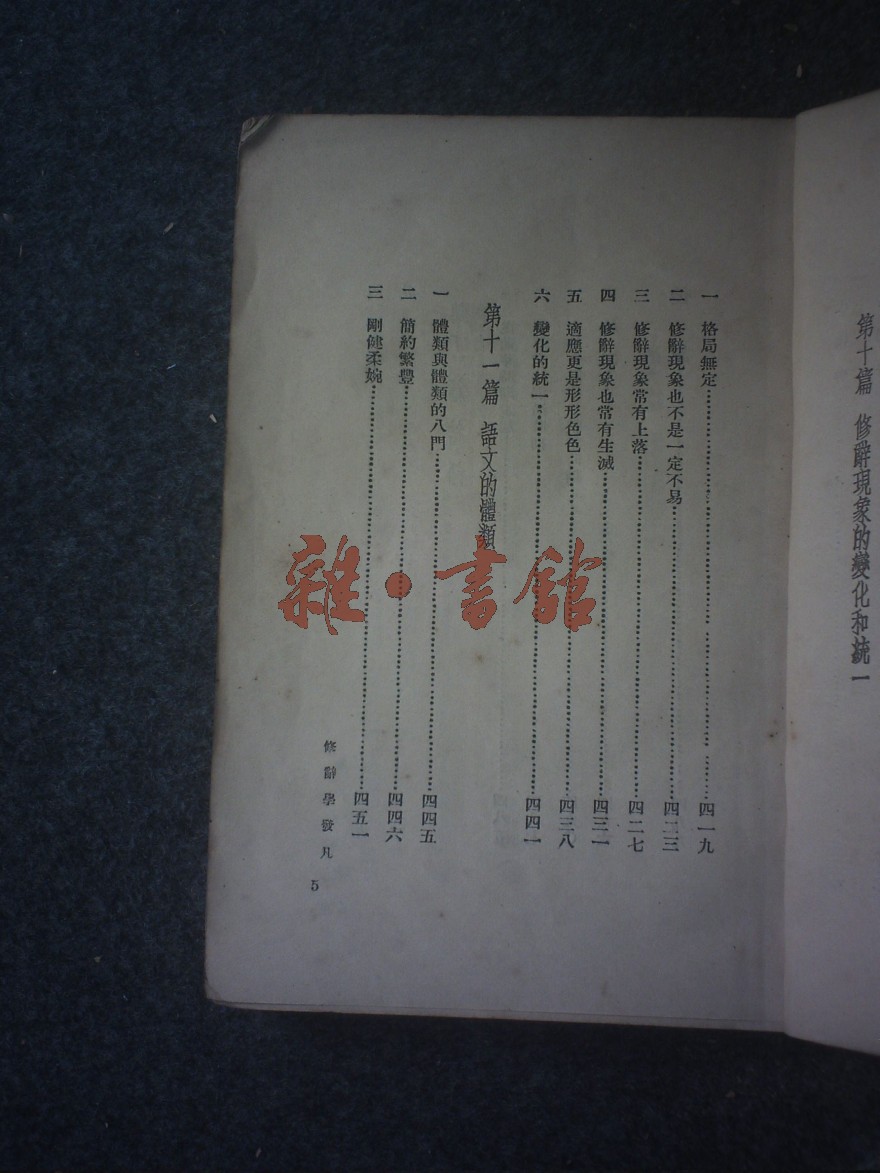 第十篇 修辭現象的變化和統一
一 格局無定……四一九
二 修辭現象也不是一定不易……四二三
三 修辭現象常有上落……四二七
四 修辭現象也常有生滅……四三一
五 適應更是形形色色……四三八
六 變化的統一……四四一
第十一篇 語文的體類
一 體類與體類的八門……四四五
二 簡約繁豐……四四六
三 剛健柔婉……四五一
修辭學發凡
5
雜·書舘